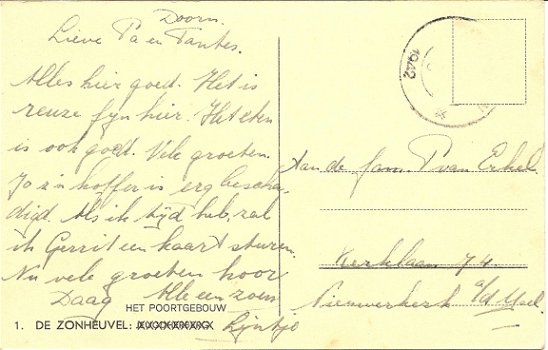 Doorn.
Lieve Pa en Tantes.
Alles hier goed. Het is
reuze fyn hier. Het eten
is ook goed. Vele groeten
Jo z'n koffer is erg bescha-
digd. Als ik tyd heb, zal
ik Gerrit een kaart sturen.
Nu vele groeten hoor
Daag Alle een zoen
Lijntje
HET POORTGEBOUW
1. DE ZONHEUVEL:
1942
Aan de fam. P. van Erkel
Kerklaan 74
Nieuwerkerk a/d IJsel